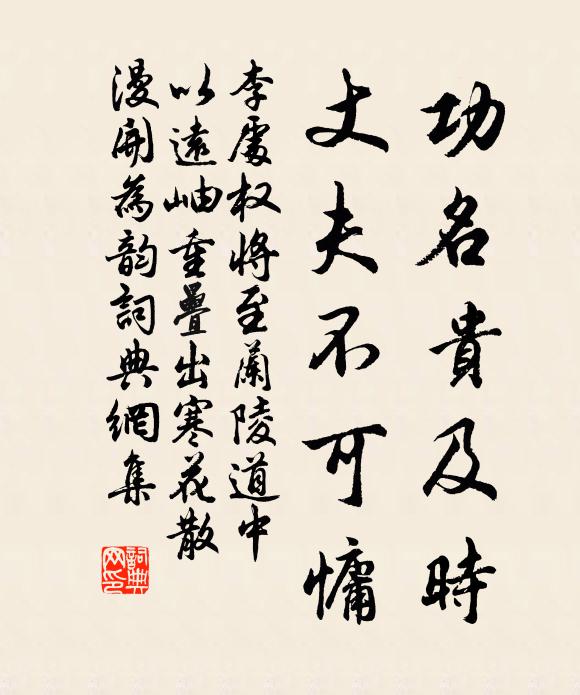 功名貴及時
丈夫不可慵
李處权將至蘭陵道中
以遠岫重疊出寒花散
漫開為韵詞典網集
詞典网印